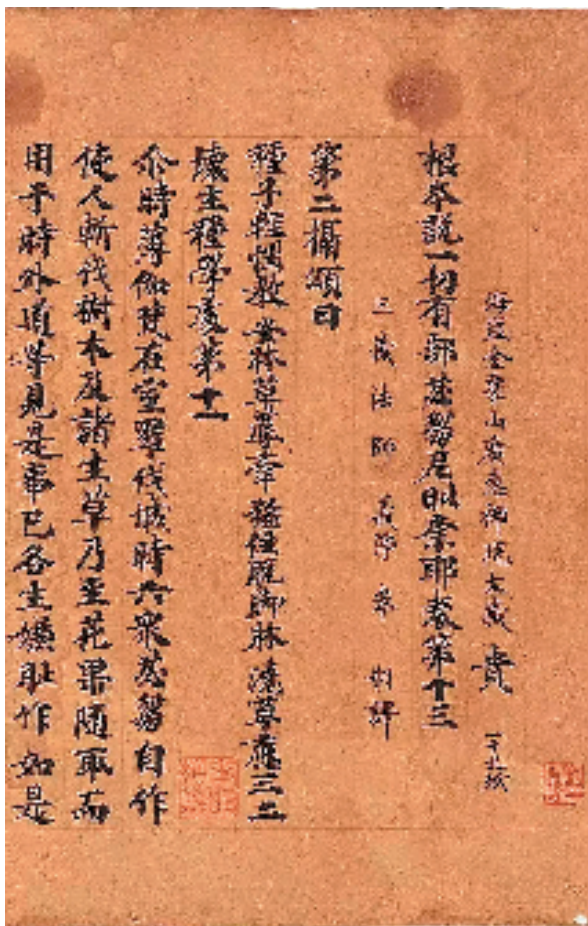 海鹽金粟山廣惠禪院大藏 賁 一千九紙
根本說一切有部苾芻尼毗柰耶卷第十三
三藏法師義淨奉 制譯
第二攝頌曰
種子輕惱教 安牀草蓐牽 強住脫腳牀 澆草應三二
壞生種學處第十一
尒時薄伽梵在室羅伐城時六衆苾芻自作
使人斬伐樹木及諸生草乃至花果隨取而
用于時外道等見是事已各生嫌恥作如是